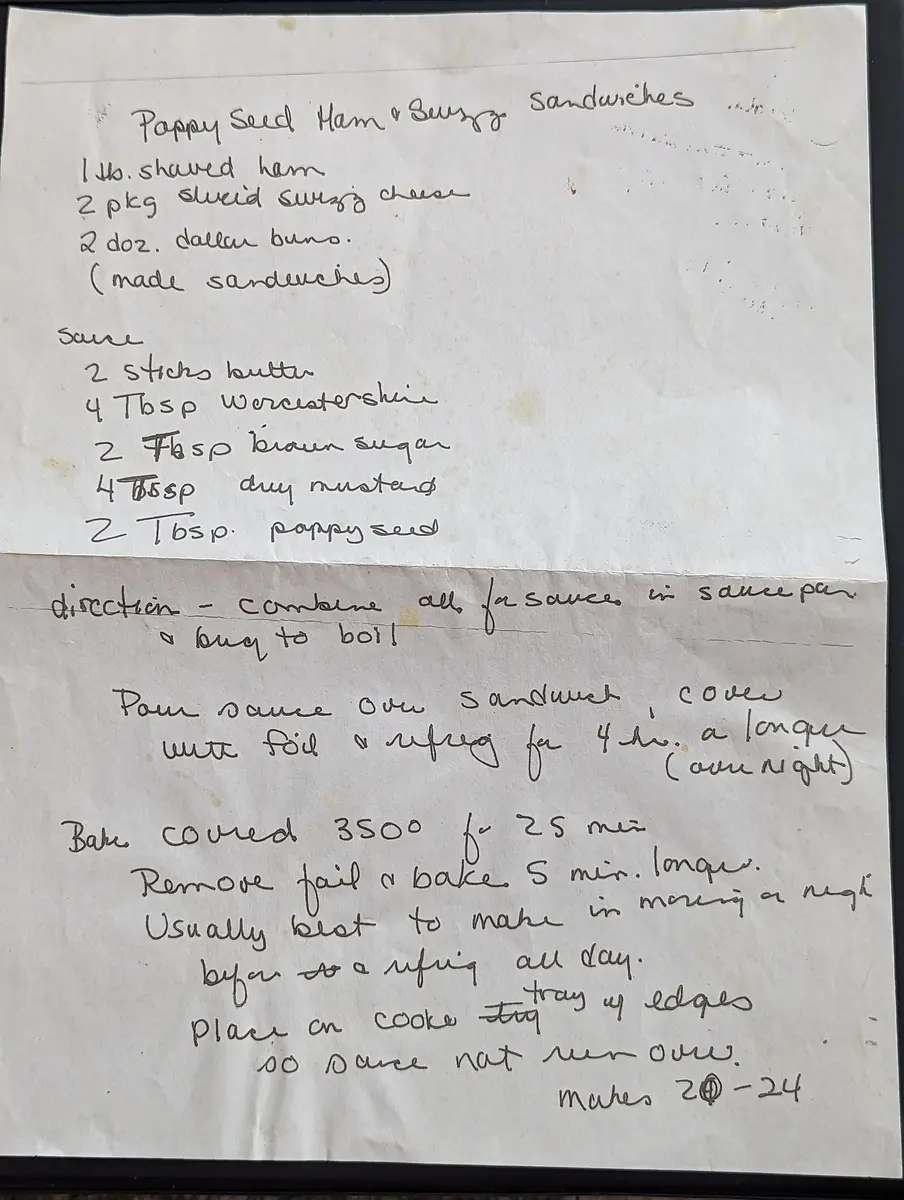 Poppy Seed Ham & Swizz Sandwiches
1 lb. shaved ham
2 pkg sliced swizz cheese
2 doz. dollar buns.
(made sandwiches)
Sauce
2 sticks butter
4 Tbsp Worcestershire
2 Tbsp brown sugar
4 Tbsp dry mustard
2 Tbsp. poppy seed
direction - combine all for sauce in sauce pan
& bring to boil
Pour sauce over sandwich, cover
with foil & refreg for 4 hr. or longer
(over night)
Bake covered 350° for 25 min
Remove foil & bake 5 min. longer.
Usually best to make in morning or night
before & refrig all day.
Place on cooke tray w/ edges
so sauce not run over.
makes 20-24